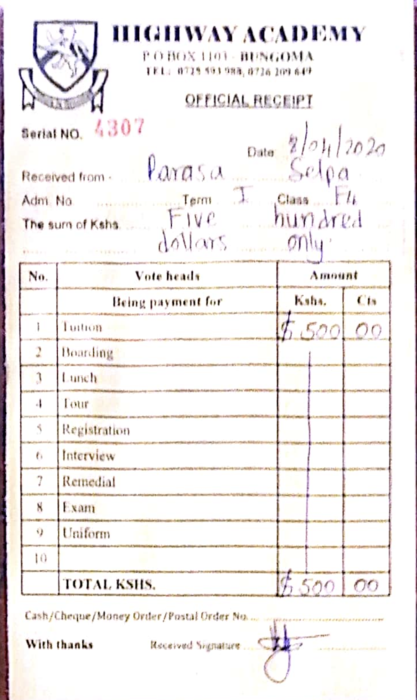 HIGHWAY ACADEMY
P O BOX 1101 - BUNGOMA
TEL: 0725 593 988, 0726 209 649
OFFICIAL RECEIPT
Serial NO. 4307
Date 8/04/2020
Received from - Parasu Selpa
Adm. No Term I Class F4
The sum of Kshs Five hundred
dollars only
No. Vote heads Amount
Being payment for Kshs. Cts
1 Tuition $ 500 00
2 Boarding
3 Lunch
4 Tour
5 Registration
6 Interview
7 Remedial
8 Exam
9 Uniform
10
TOTAL KSHS. $ 500 00
Cash/Cheque/Money Order/Postal Order No.
With thanks Received Signature